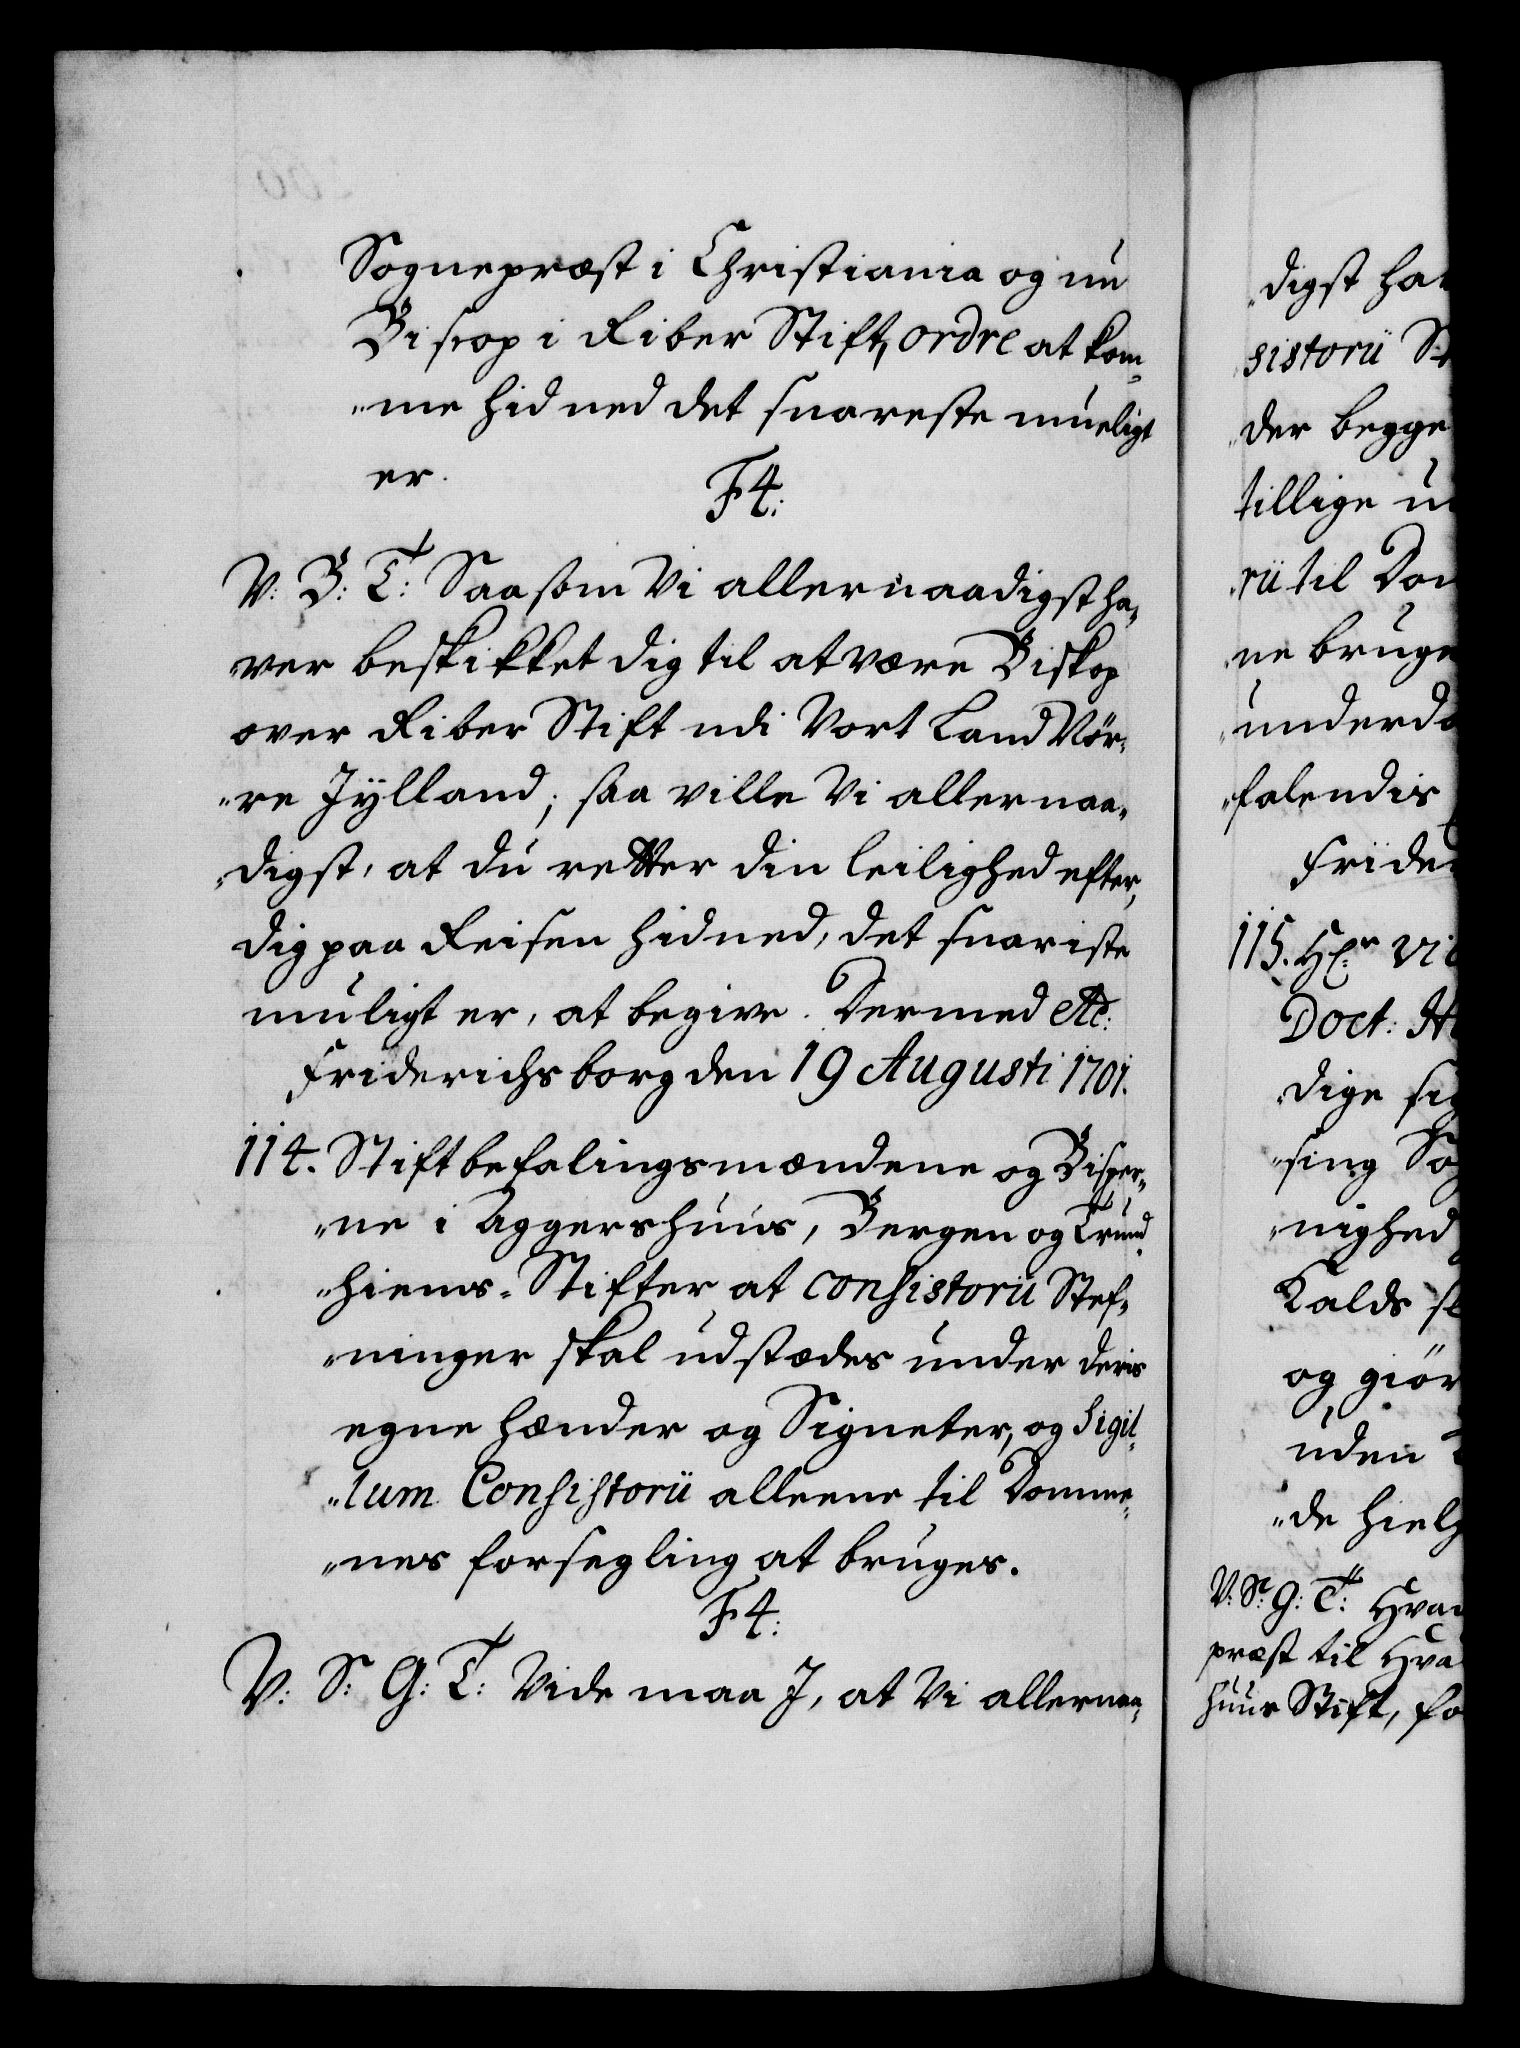 Sognepræst i Christiania og nu
Biscop i Riber Stift, ordre at kom¬
"me hid ned det snareste mueligt
er.
F4:
V: B: T: Saasom Vi allernaadigst ha¬
"ver beskikket dig til at være Biskop
over Riber Stift udi Vort Land Nör¬
"re Jÿlland; saa ville Vi allernaa¬
"digst, at du retter din leilighed efter,
dig paa Reisen hidned, det snariste
muligt er, at begive. Dermed etc:
Friderichsborg den 19 Augusti 1701.
114. Stiftbefalingsmændene og Bisper¬
"ne i Aggershuus, Bergen og Trund¬
"hiems-Stifter at Consistorii Stef¬
"ninger skal udstædes under deris
egne hænder og Signeter, og Sigil¬
"lum Consistorii alleene til Domme¬
"nes forsegling at bruges.
F4:
V: S: G: T: Vide maa J, at Vi allernaa¬
"digst ha
sistorii St
"der begge
tillige u
"rii til Dom
"ne bruge
"underda
"falendis
Frider
115. Hr Vi
Doct: H
"dige sig
"sing So
"nighed
Kalds s
og giör
uden
"de hielp
V: S: G: T: Hva
præst til Hva
huus Stift, fo